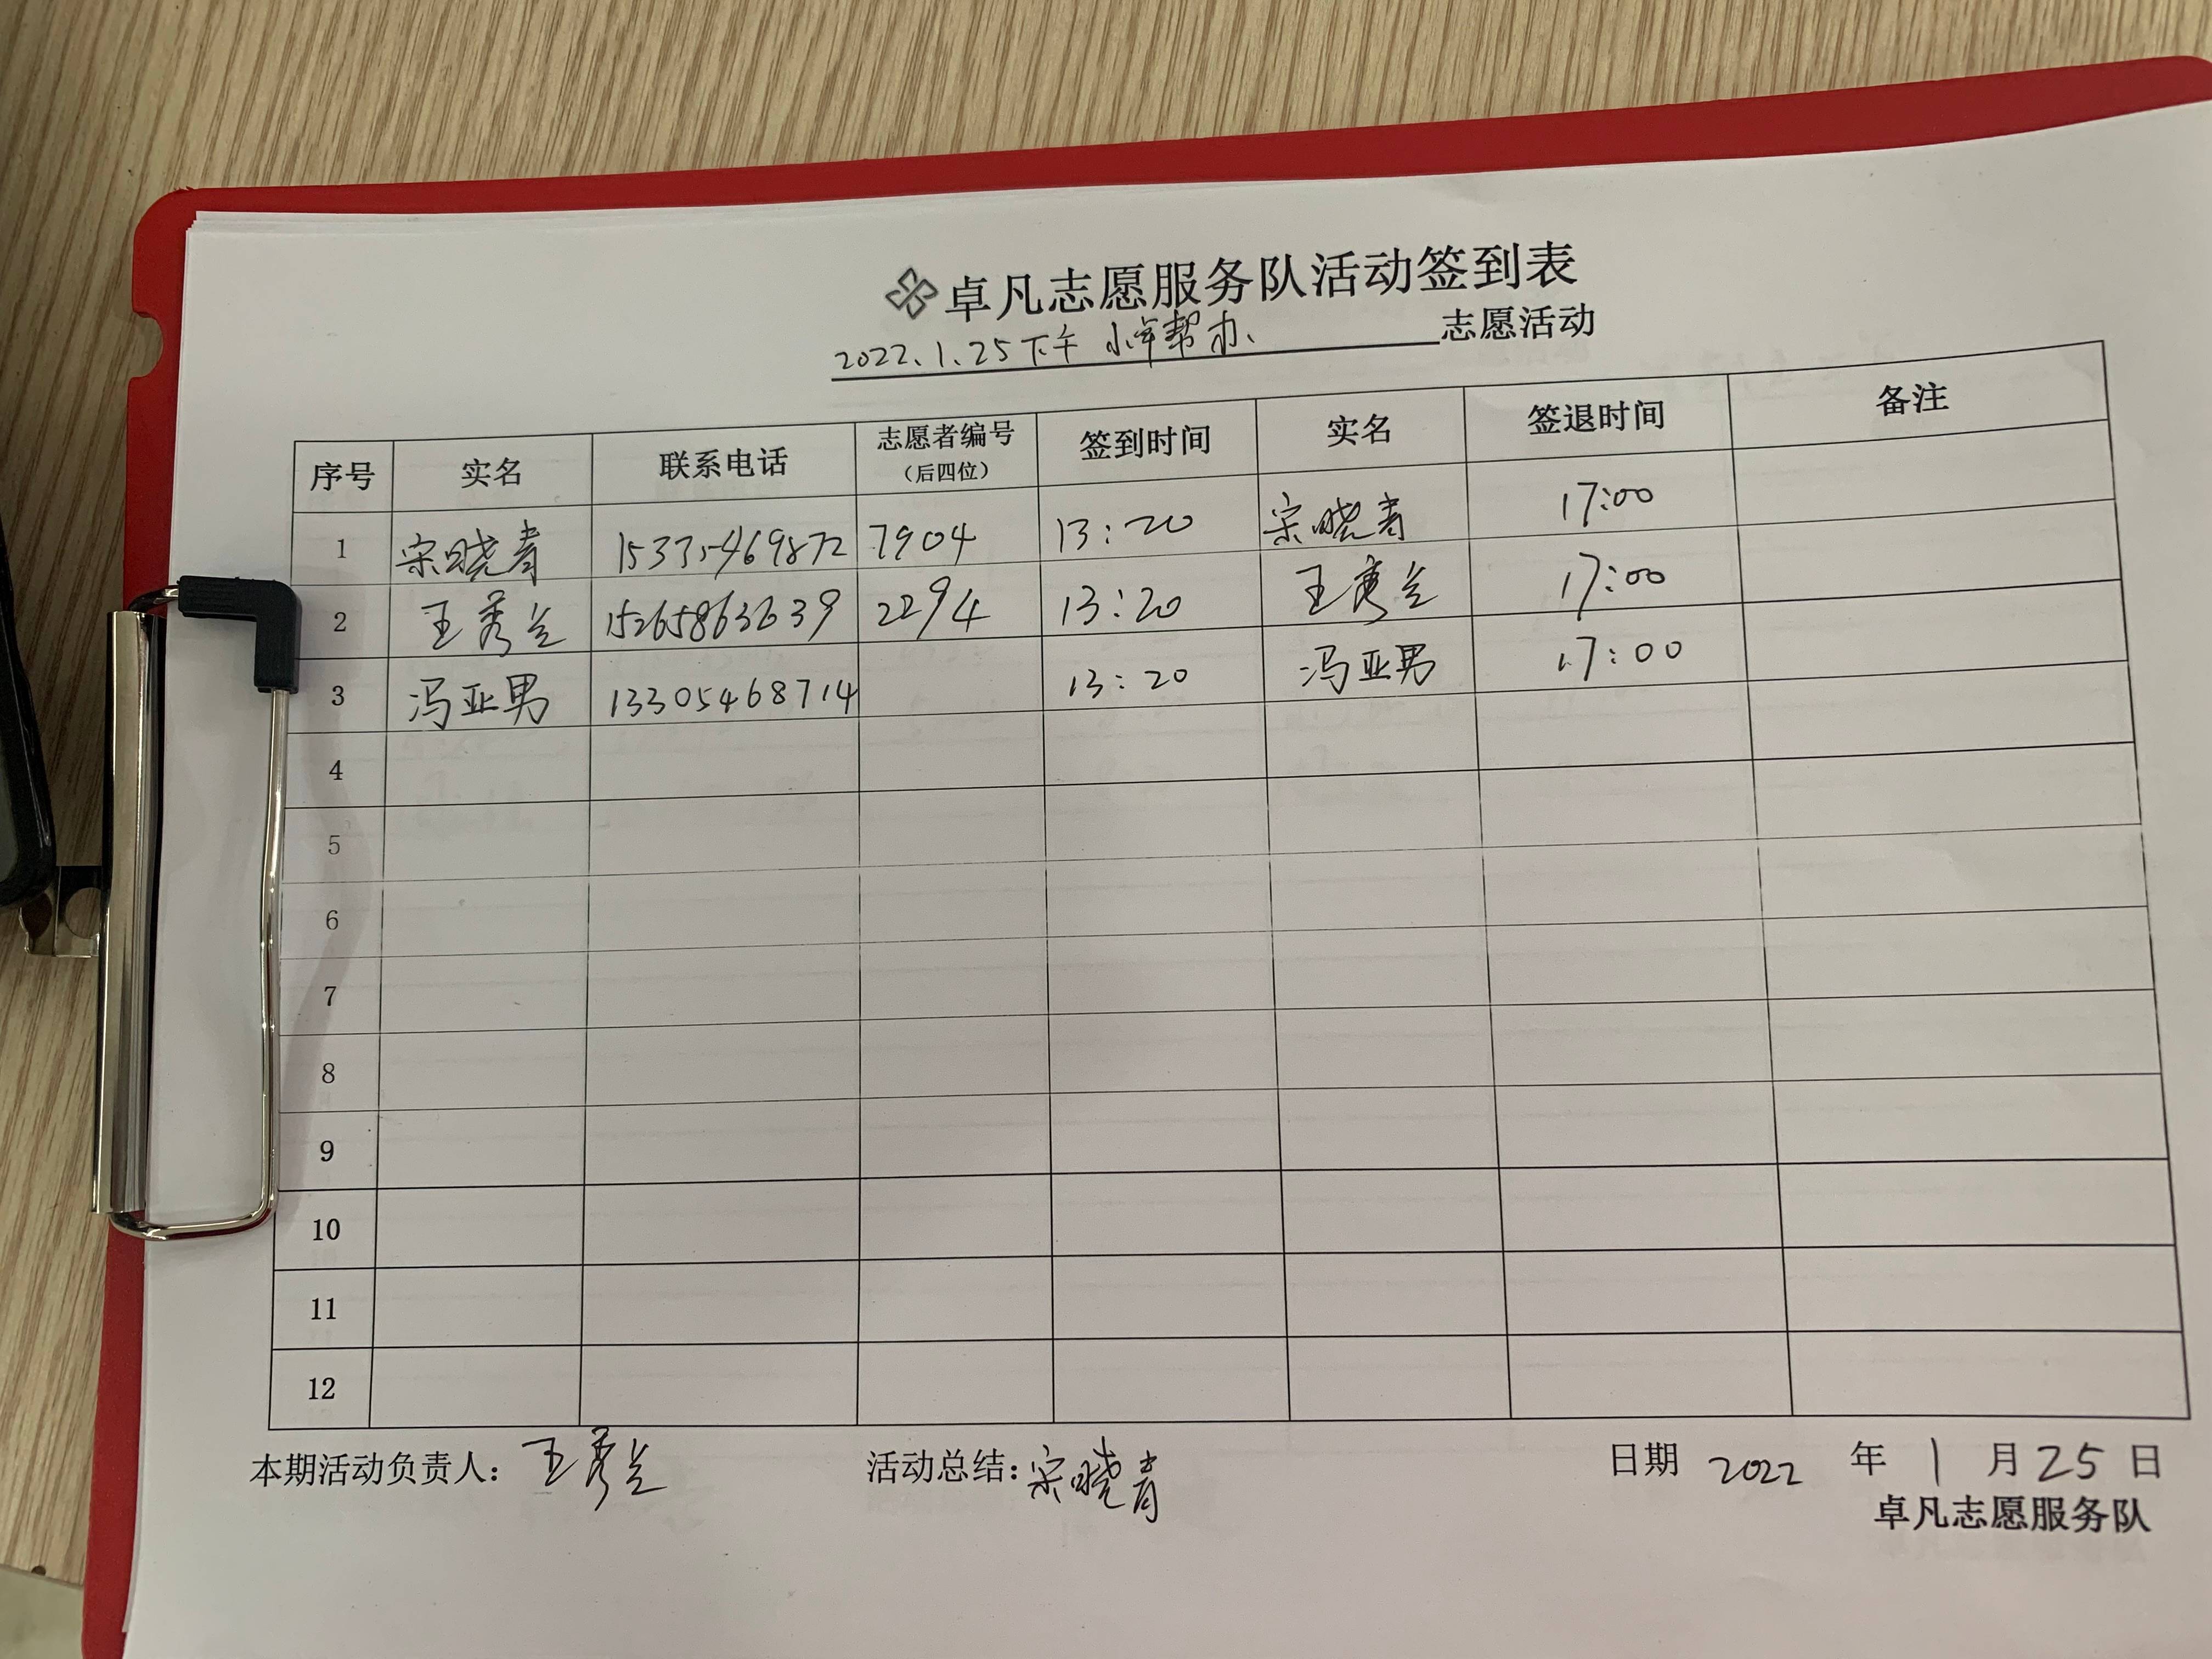 卓凡志愿服务队活动签到表
2022.1.25下午 小牟帮办 志愿活动
序号 实名 联系电话 志愿者编号（后四位） 签到时间 实名 签退时间 备注
1 宋晓青 15335469872 7904 13:20 宋晓青 17:00
2 王秀兰 15265863639 2294 13:20 王秀兰 17:00
3 冯亚男 13305468714 13:20 冯亚男 17:00
4
5
6
7
8
9
10
11
12
本期活动负责人：王秀兰 活动总结：宋晓青 日期 2022 年 1 月 25 日
卓凡志愿服务队